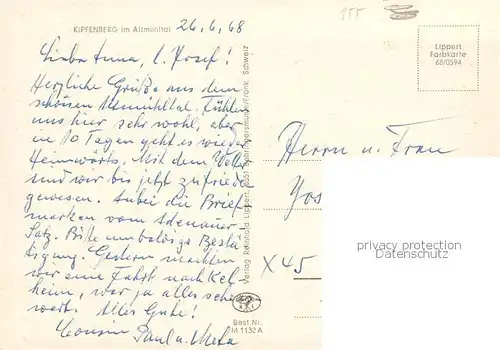 KIPFENBERG im Altmühltal 26.6.68
Liebe Anna, l. Josef!
Herzliche Grüße aus dem
schönen Altmühltal. Fühlen
uns hier sehr wohl, aber
in 10 Tagen geht es wieder
Heimwärts. Mit dem Wetter
sind wir bis jetzt zufrieden
gewesen. Anbei die Brief
marken vom Adenauer-
Satz. Bitte um Bestä
tigung. Gestern machten
wir eine Fahrt nach Kel
heim, war ja alles sehens
wert. Alles Gute!
Cousin Paul u. Meta
Verlag Reinhold Lippert, 8551 Ebermannstadt/Fränk. Schweiz
Best. Nr.
M 1132 A
155
Lippert
Farbkarte
68/0594
Herrn u. Frau
Jos
X 45
privacy protection
www.oldthing.de